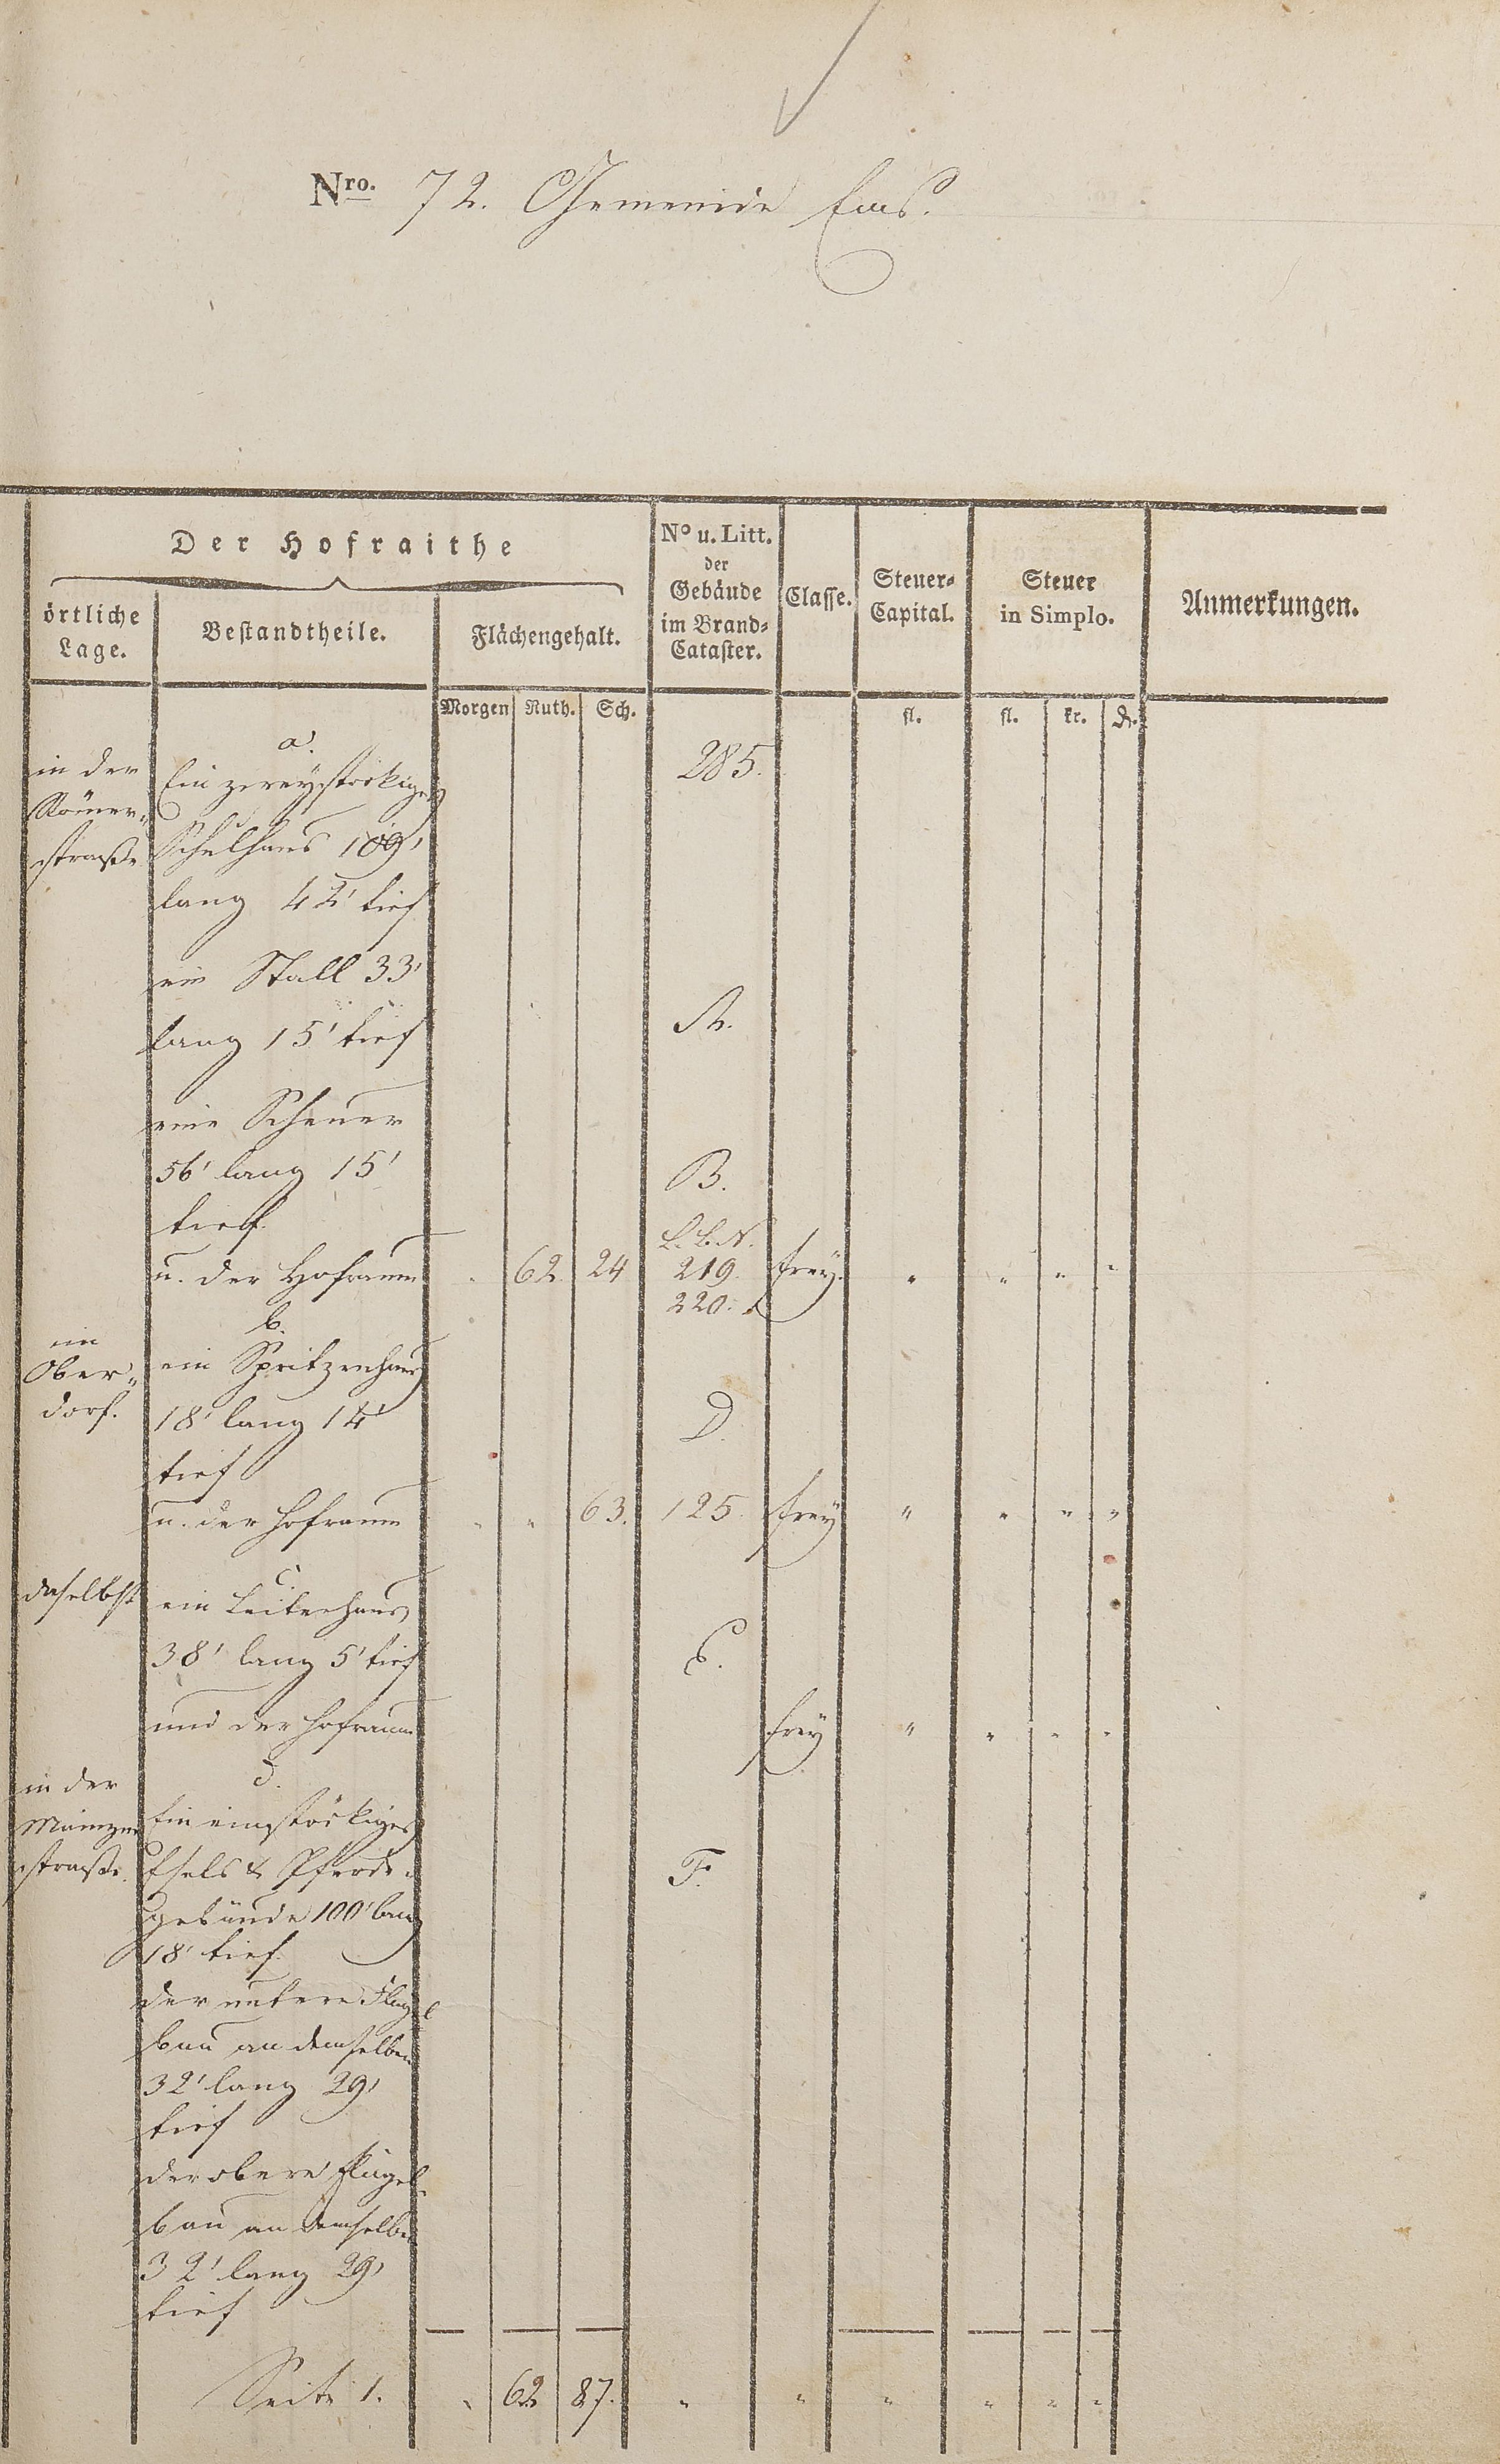 Nro. 72. Gemeinde Ems.
Der Hofraithe
No u. Litt.
der
Gebäude
im Brand-
Cataster.
Classe.
Steuer-
Capital.
Steuer
in Simplo.
Anmerkungen.
örtliche
Lage.
Bestandtheile.
Flächengehalt.
Morgen Ruth. Sch. fl. fl. kr. d.
a.
in der Ein zweystöckiges 285.
Römer-
straße Schulhaus 109'
lang 42' tief
ein Stall 33'
lang 15' tief A.
eine Scheuer
56' lang 15' B.
tief.
u. der Hofraum " 62. 24 219. frey. " " " "
220.
b.
im
Ober- ein Spritzenhaus
dorf. 18' lang 14' D.
tief
u. der Hofraum " " 63. 125. frey " " " "
c.
daselbst ein Leiterhaus
38' lang 5' tief E.
und der Hofraum frey " " " "
d.
in der
Mainzer Ein einstöckiges
straße. Esels & Pferde- F.
gebäude 100' lang
18' tief.
der untere Flügel
bau an demselben
32' lang 29'
tief
der obere Flügel-
bau an demselben
32' lang 29'
tief
Seite 1. " 62 87. " " " " " "